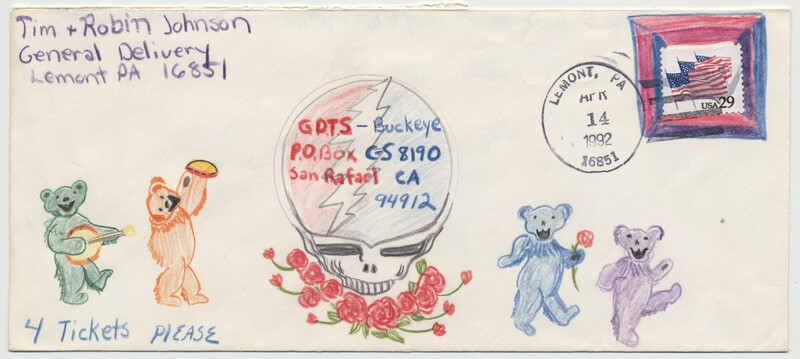 Tim + Robin Johnson
General Delivery
Lemont PA 16851
USA 29
LEMONT, PA
APR
14
1992
16851
GDTS - Buckeye
P.O. Box CS 8190
San Rafael CA
94912
4 Tickets PLEASE